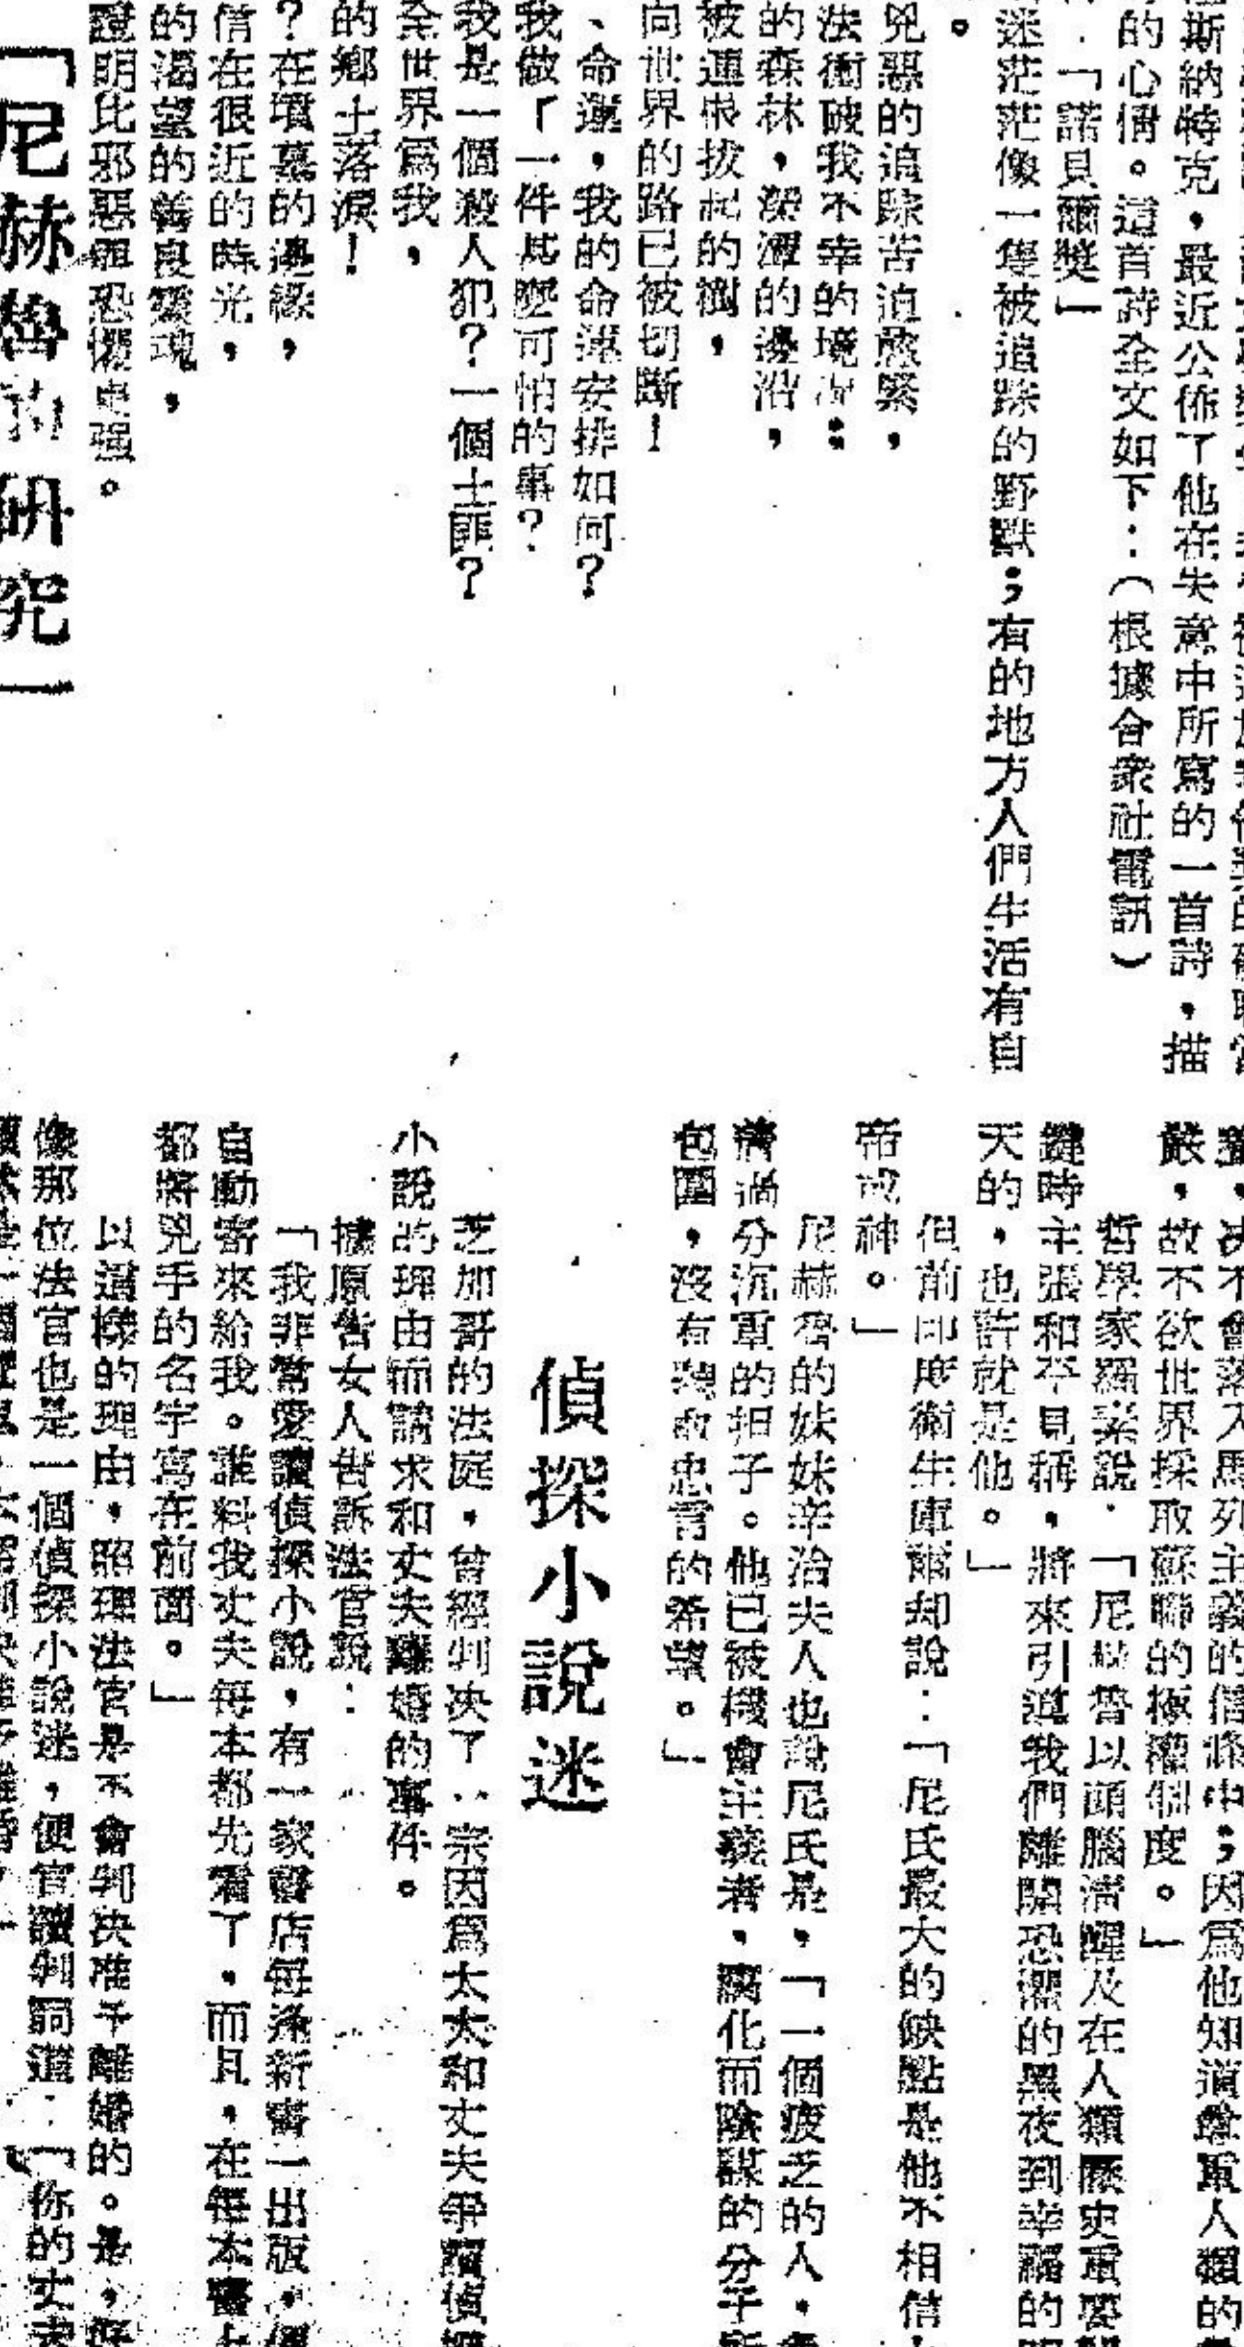 斯納特克，最近公佈了他在失意中所寫的一首詩，描
的心情。這首詩全文如下：（根據合衆社電訊）
「諾貝爾獎」
迷茫茫像一隻被追踪的野獸；有的地方人們生活有自
。
兇惡的追踪苦迫愈緊，
法衝破我不幸的境况：
的森林，深潭的邊沿，
被連根拔起的樹，
向世界的路已被切斷！
、命運，我的命運安排如何？
我做了一件甚麼可怕的事？
我是一個殺人犯？一個土匪？
全世界爲我，
的鄉土落淚！
？在墳墓的邊緣，
信在很近的時光，
的渴望的善良靈魂，
證明比邪惡罪恐懼更强。
「尼赫魯的研究」
，决不會落入馬列主義的信條中；因爲他知道尊重人類的
嚴，故不欲世界採取蘇聯的極權制度。」
哲學家羅素說：「尼赫魯以頭腦清醒及在人類歷史重要
鍵時主張和平見稱，將來引導我們離開恐懼的黑夜到幸福的
天的，也許就是他。」
但前印度衛生庫爾却說：「尼氏最大的缺點是他不相信
帝或神。」
尼赫魯的妹妹辛治夫人也說尼氏是，「一個疲乏的人，
過分沉重的担子。他已被機會主義者，腐化而陰謀的分子所
包圍，沒有忠言的希望。」
偵探小說迷
芝加哥的法庭，曾經判决了一宗因爲太太和丈夫爭讀偵
小說的理由而請求和丈夫離婚的事件。
據原告女人告訴法官說：
「我非常愛讀偵探小說，有一家書店每逢新書一出版，便
自動寄來給我。誰料我丈夫每本都先看了，而且，在每本書上
都將兇手的名字寫在前面。」
以這樣的理由，照理法官是不會判决准予離婚的。是，好
像那位法官也是一個偵探小說迷，便宣讀判詞道：「你的丈夫